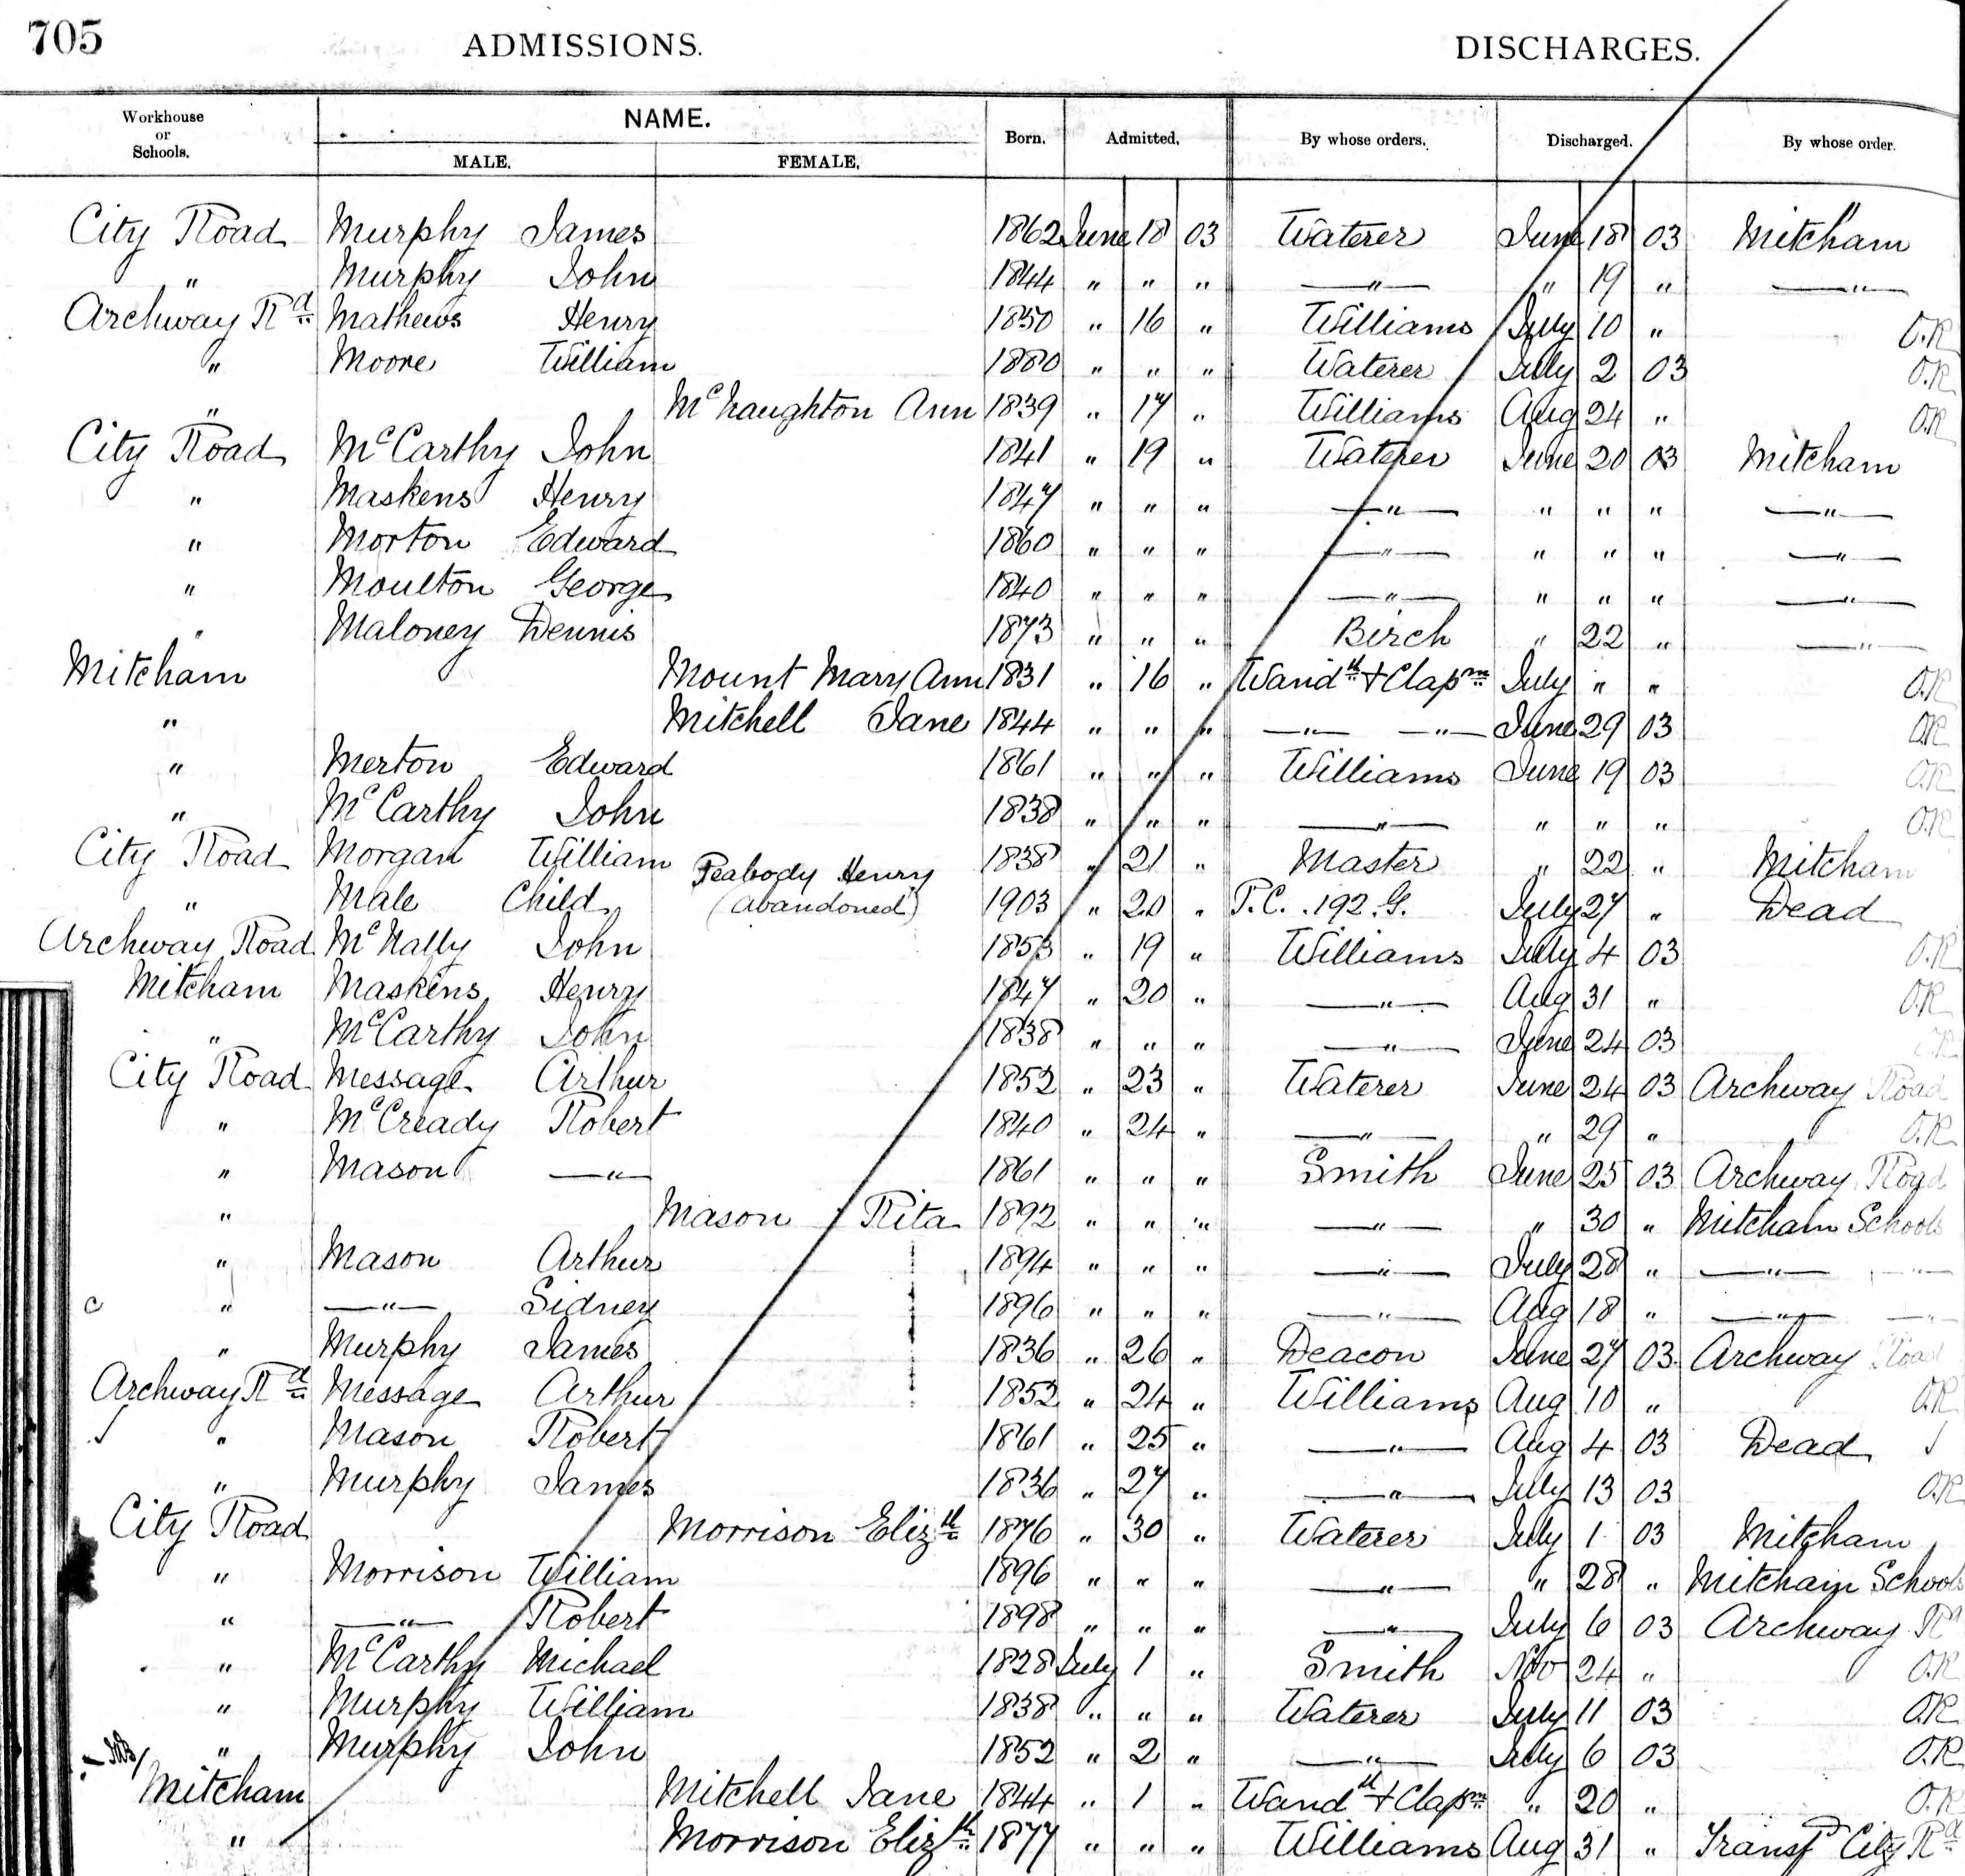 705 ADMISSIONS. DISCHARGES.
Workhouse or Schools. NAME. Born. Admitted. By whose orders. Discharged. By whose order.
MALE. FEMALE.
City Road Murphy James 1862 June 18 03 Waterer June 18 03 Mitcham
" Murphy John 1844 " " " —"— " 19 " —"—
Archway Rd Mathews Henry 1850 " 16 " Williams July 10 " O.R
" Moore William 1880 " " " Waterer July 2 03 O.R
" McNaughton Ann 1839 " 17 " Williams Aug 24 " O.R
City Road McCarthy John 1841 " 19 " Waterer June 20 03 Mitcham
" Maskens Henry 1847 " " " —"— " " " —"—
" Morton Edward 1860 " " " —"— " " " —"—
" Moulton George 1840 " " " —"— " " " —"—
" Maloney Dennis 1873 " " " Birch " 22 " —"—
Mitcham Mount Mary Ann 1831 " 16 " Wandth + Clapm July " " O.R
" Mitchell Jane 1844 " " " —"— —"— June 29 03 O.R
" Merton Edward 1861 " " " Williams June 19 03 O.R
" McCarthy John 1838 " " " —"— " " " O.R
City Road Morgan William 1838 " 21 " Master " 22 " Mitcham
" Male Child Peabody Henry (abandoned) 1903 " 20 " P.C. 192.G. July 27 " Dead
Archway Road McNally John 1853 " 19 " Williams July 4 03 O.R
Mitcham Maskens Henry 1847 " 20 " —"— Aug 31 " O.R
" McCarthy John 1838 " " " —"— June 24 03 O.R
City Road Message Arthur 1852 " 23 " Waterer June 24 03 Archway Road
" McCready Robert 1840 " 24 " —"— " 29 " O.R
" Mason —"— 1861 " " " Smith June 25 03 Archway Road
" Mason Rita 1892 " " " —"— " 30 " Mitcham Schools
" Mason Arthur 1894 " " " —"— July 28 " —"— —"—
c " —"— Sidney 1896 " " " —"— Aug 18 " —"— —"—
" Murphy James 1836 " 26 " Deacon June 27 03 Archway Road
Archway Rd Message Arthur 1852 " 24 " Williams Aug 10 " O.R
" Mason Robert 1861 " 25 " —"— Aug 4 03 Dead
" Murphy James 1836 " 27 " —"— July 13 03 O.R
City Road Morrison Elizth 1876 " 30 " Waterer July 1 03 Mitcham
" Morrison William 1896 " " " —"— " 28 " Mitcham Schools
" —"— Robert 1898 " " " —"— July 6 03 Archway Rd
" McCarthy Michael 1828 July 1 " Smith Nov 24 " O.R
" Murphy William 1838 " " " Waterer July 11 03 O.R
" Murphy John 1852 " 2 " —"— July 6 03 O.R
Mitcham Mitchell Jane 1844 " 1 " Wandth + Clapm " 20 " O.R
" Morrison Elizth 1877 " " " Williams Aug 31 " Transf City Rd